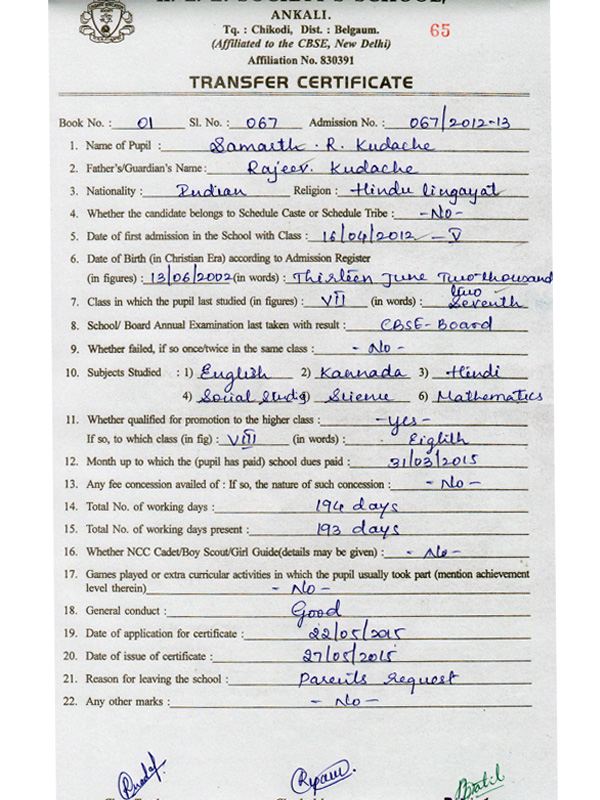 ANKALI.
Tq. : Chikodi, Dist. : Belgaum.
(Affiliated to the CBSE, New Delhi)
65
Affiliation No. 830391
TRANSFER CERTIFICATE
Book No. : 01 Sl. No. : 067 Admission No. : 067/2012-13
1. Name of Pupil : Samarth . R. Kudache
2. Father's/Guardian's Name : Rajeev. Kudache
3. Nationality : Indian Religion : Hindu lingayat
4. Whether the candidate belongs to Schedule Caste or Schedule Tribe : -No-
5. Date of first admission in the School with Class : 16/04/2012 - V
6. Date of Birth (in Christian Era) according to Admission Register
(in figures) : 13/06/2002 (in words) : Thirteen June Two thousand two
7. Class in which the pupil last studied (in figures) : VII (in words) : Seventh
8. School/ Board Annual Examination last taken with result : CBSE-Board
9. Whether failed, if so once/twice in the same class : - No -
10. Subjects Studied : 1) English 2) Kannada 3) Hindi
4) Social Studi 5) Science 6) Mathematics
11. Whether qualified for promotion to the higher class : -yes-
If so, to which class (in fig) : VIII (in words) : Eighth
12. Month up to which the (pupil has paid) school dues paid : 31/03/2015
13. Any fee concession availed of : If so, the nature of such concession : - No -
14. Total No. of working days : 194 days
15. Total No. of working days present : 193 days
16. Whether NCC Cadet/Boy Scout/Girl Guide(details may be given) : - No -
17. Games played or extra curricular activities in which the pupil usually took part (mention achievement
level therein) - No -
18. General conduct : Good
19. Date of application for certificate : 22/05/2015
20. Date of issue of certificate : 27/05/2015
21. Reason for leaving the school : Parents request
22. Any other marks : - No -